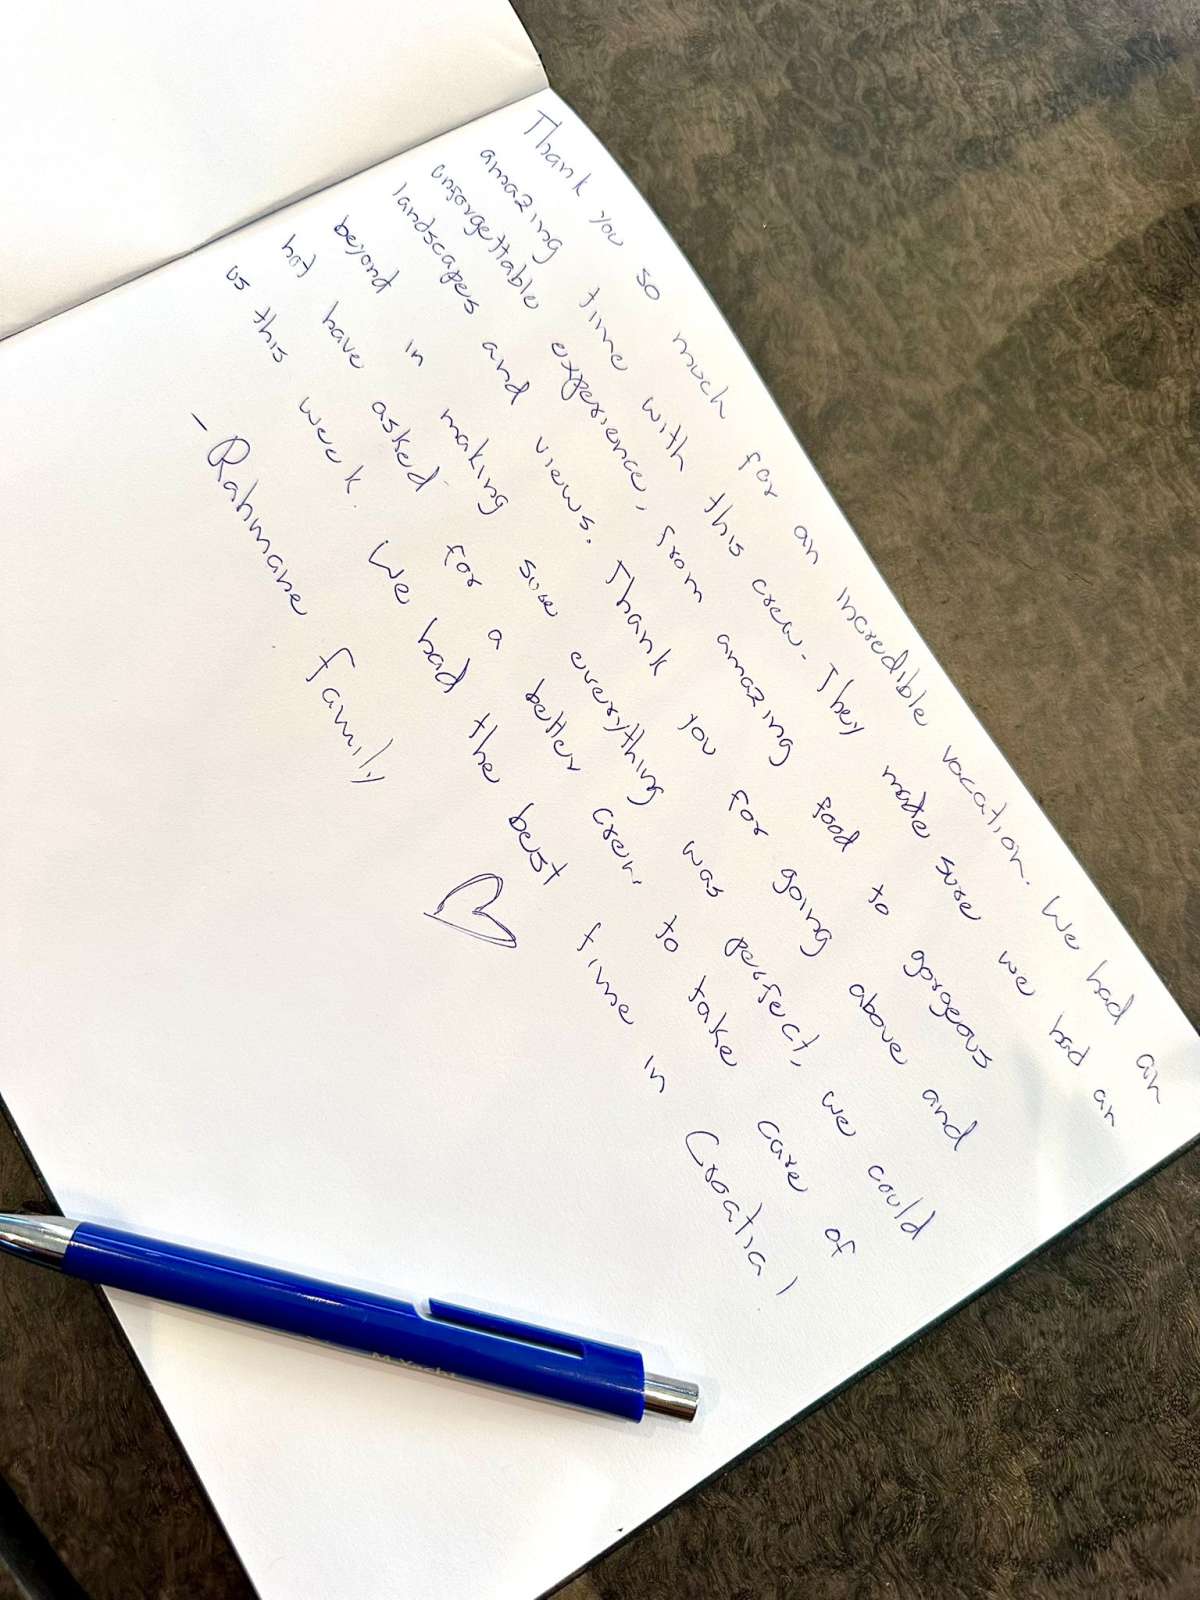 Thank you so much for an incredible vacation. We had an
amazing time with this crew. They made sure we had an
unforgettable experience, from amazing food to gorgeous
landscapes and views. Thank you for going above and
beyond in making sure everything was perfect, we could
not have asked for a better crew to take care of
us this week. We had the best time in Croatia!
- Rahmane Family